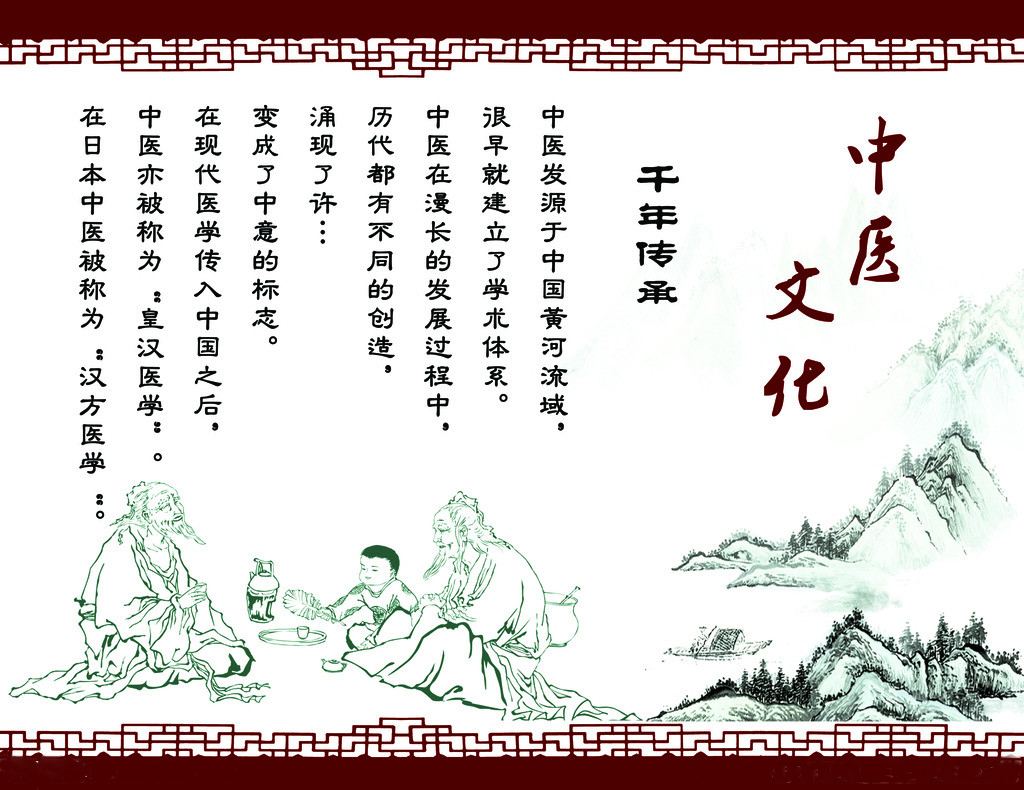 中医
文化
千年传承
中医发源于中国黄河流域，
很早就建立了学术体系。
中医在漫长的发展过程中，
历代都有不同的创造，
涌现了许…
变成了中意的标志。
在现代医学传入中国之后，
中医亦被称为“皇汉医学”。
在日本中医被称为“汉方医学“。